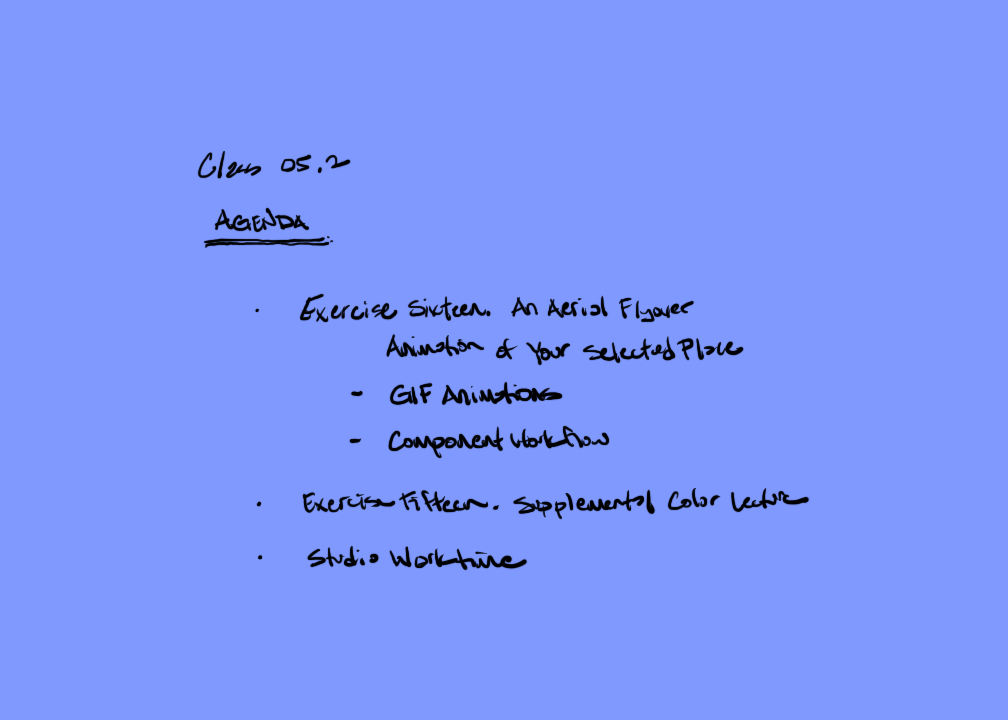 Class 05.2
AGENDA
· Exercise Sixteen. An Aerial Flyover
Animation of Your Selected Place
- GIF Animations
- Component Workflow
· Exercise Fifteen. Supplemental Color Lecture
· Studio Worktime